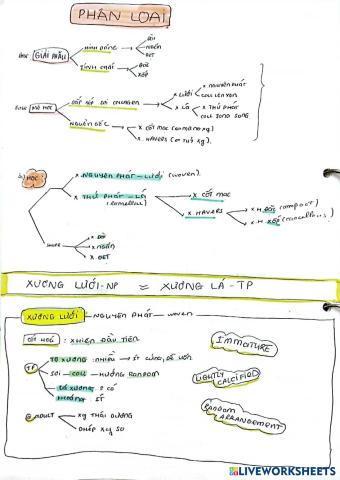 PHÂN LOẠI
GIẢI PHẪU
HÌNH DÁNG
DÀI
NGẮN
DẸT
TÍNH CHẤT
ĐẶC
XỐP
MÔ HỌC
SẮP XẾP SỢI COLLAGEN
X LƯỚI
X NGUYÊN PHÁT
COLL LỘN XỘN
X LÁ
X THỨ PHÁT
COLL SONG SONG
NGUỒN GỐC
X CỐT MẠC
X HAVERS
X NGUYÊN PHÁT – LƯỚI (woven)
X THỨ PHÁT – LÁ
(lamellar)
X CỐT MẠC
X HAVERS
X.H ĐẶC (compact)
X.H XỐP
SHAPE
X DÀI
X NGẮN
X DẸT
XƯƠNG LƯỚI-NP ≈ XƯƠNG LÁ-TP
XƯƠNG LƯỚI – NGUYÊN PHÁT – woven
CỐT HOÁ : XHIỆN ĐẦU TIÊN
IMMATURE
TP
TB XƯƠNG : NHIỀU
SỢI – COLL – HƯỚNG RANDOM
LIGHTLY CALCIFIED
KHOÁNG : ÍT
RANDOM ARRANGEMENT
@ ADULT
XQ THÁI DƯƠNG
GHÉP XG SỌ
LIVEWORKSHEETS